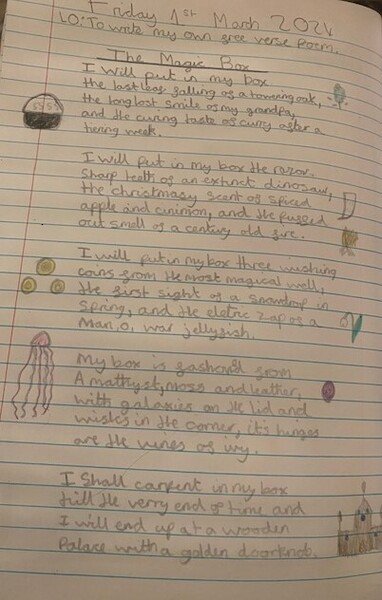 Friday 1st March 2024
LO: To write my own free verse poem.
The Magic Box
I will put in my box
the last leaf falling of a towering oak,
the long lost smile of my grandpa,
and the curing taste of curry after a
tiering week.
I will put in my box the razor
sharp teeth of an extinct dinosaur,
the christmasy scent of spiced
apple and cinimon, and the pugged
out smell of a century old fire.
I will put in my box three wushing
coins from the most magical well,
the first sight of a snowdrop in
Spring, and the eletric zap of a
Man, o, war jellyfish.
My box is fashond from
Amathyst, moss and leather,
with galaxies on the lid and
wishes in the corner, it's hinges
are the vines of ivy.
I shall carpent in my box
till the verry end of time and
I will end up at a wooden
Palace with a golden doorknob.